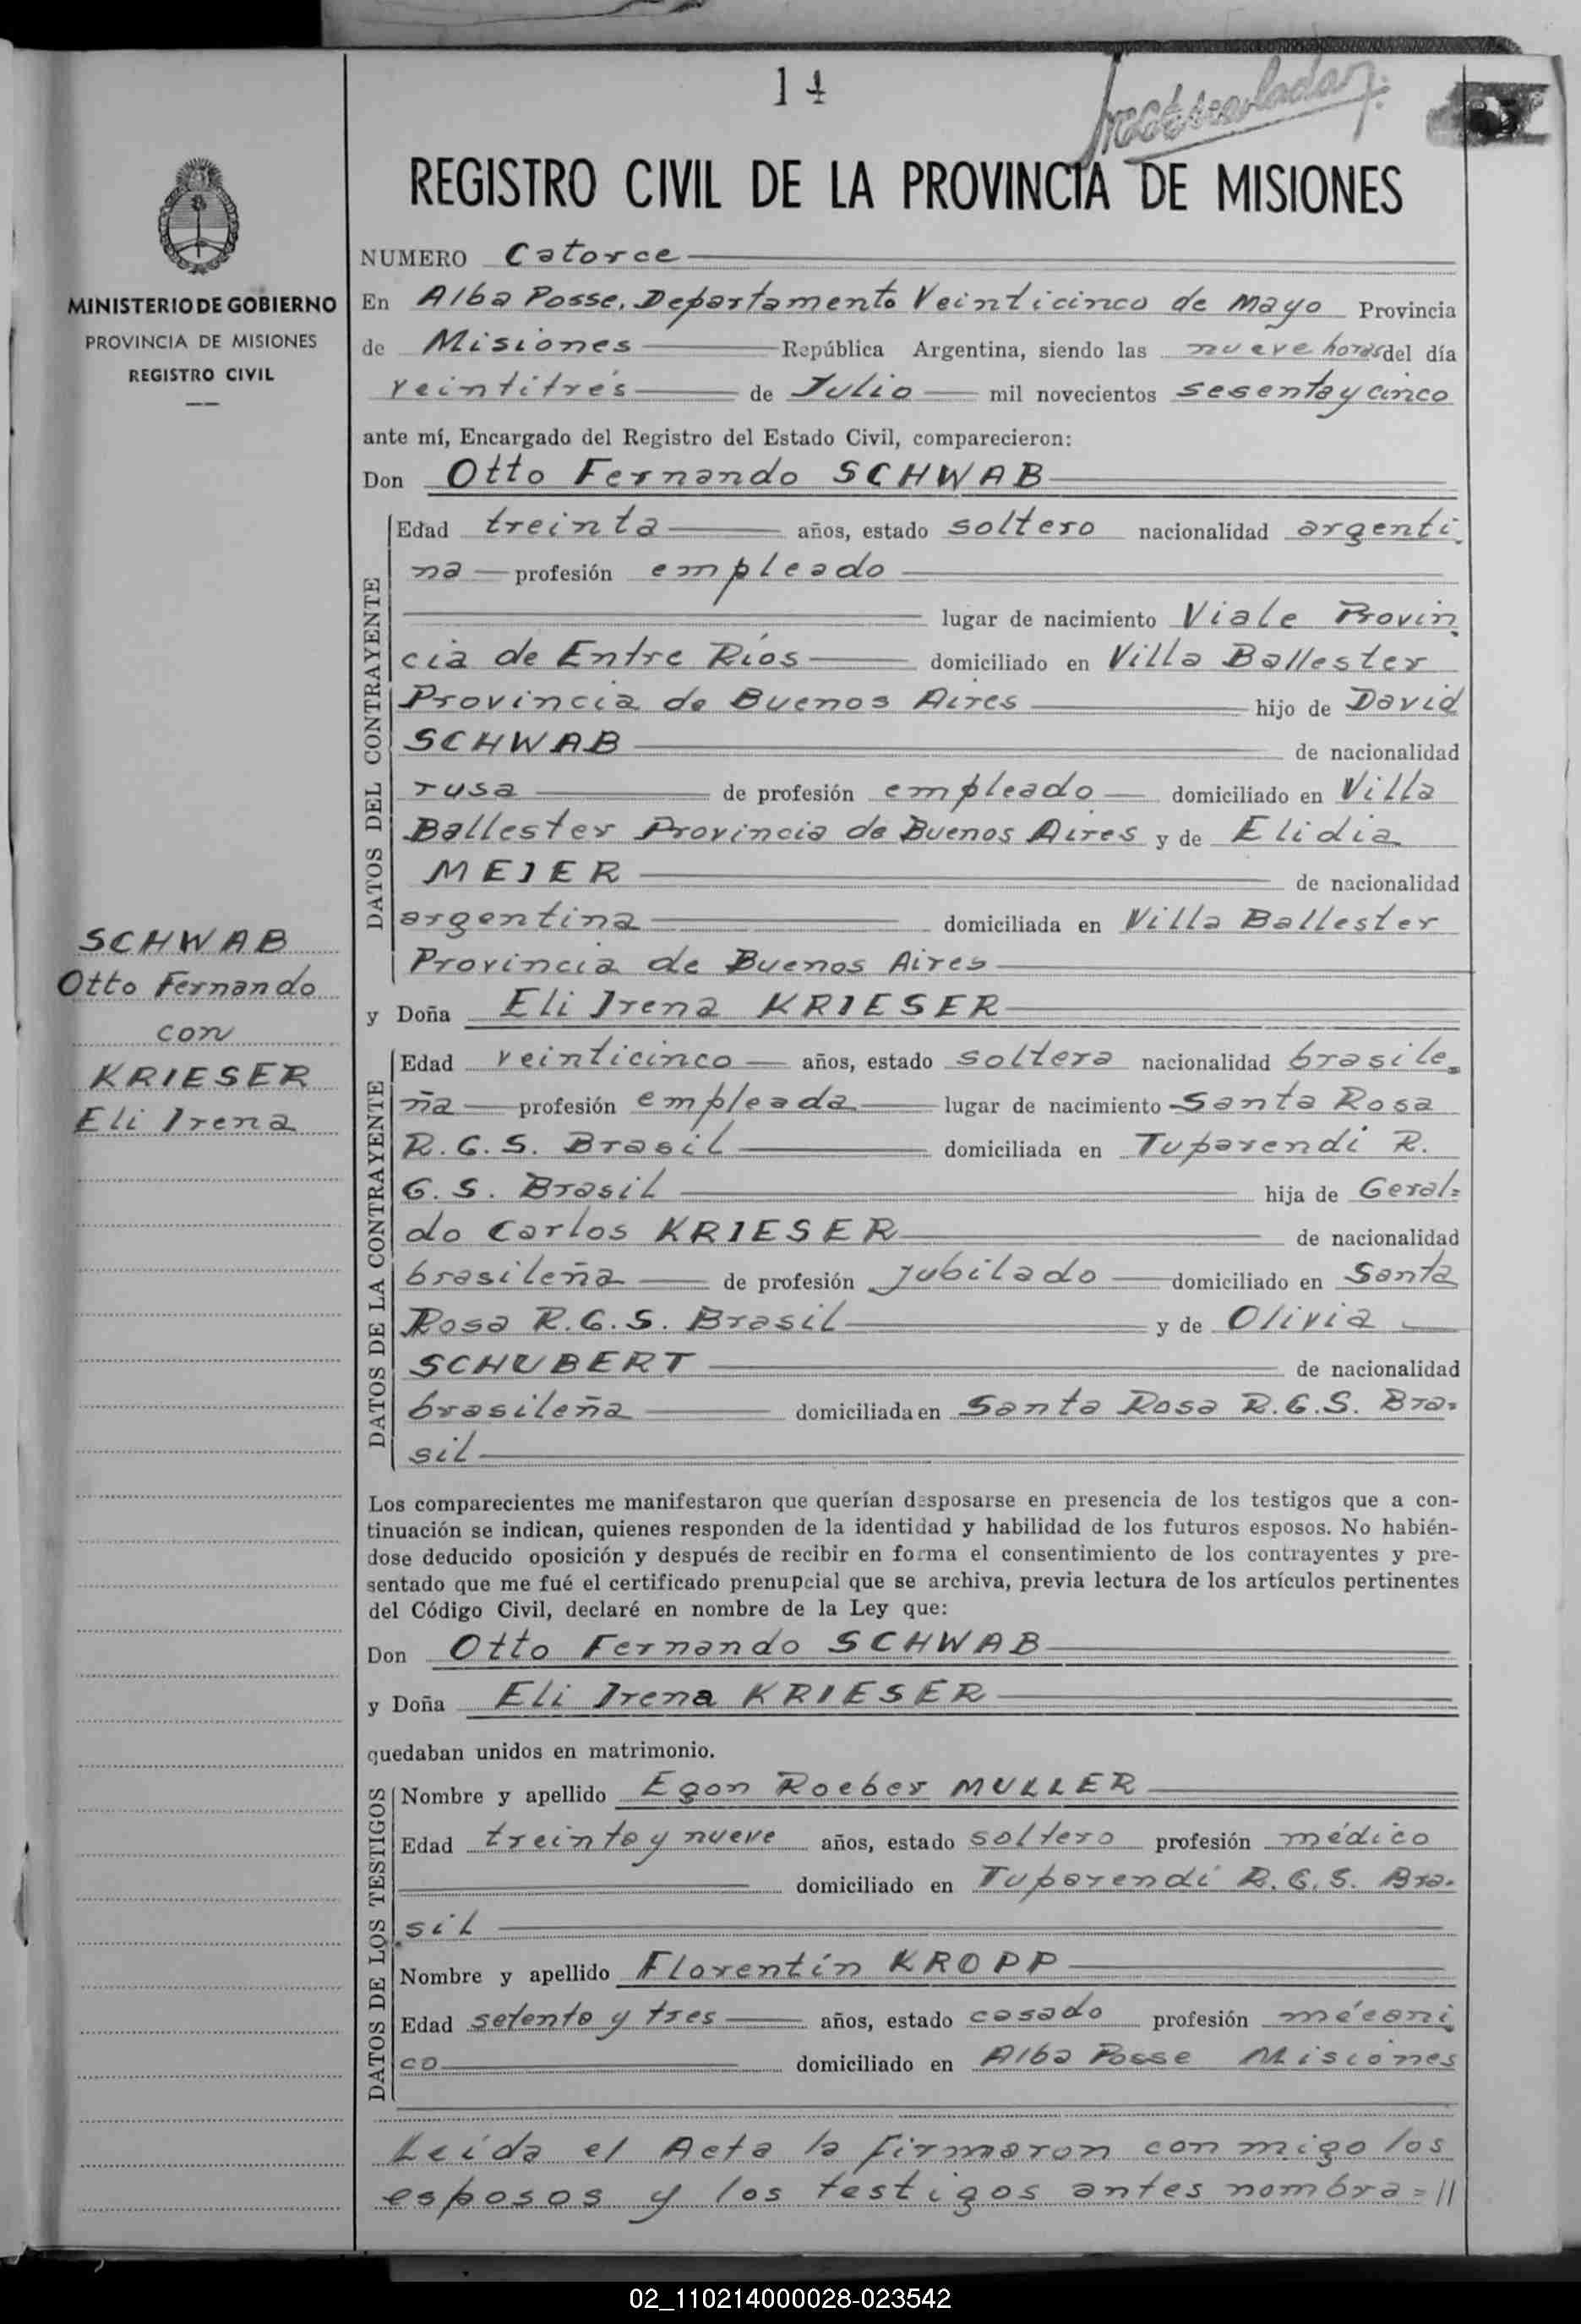 14
REGISTRO CIVIL DE LA PROVINCIA DE MISIONES
MINISTERIO DE GOBIERNO
PROVINCIA DE MISIONES
REGISTRO CIVIL
NUMERO Catorce
En Alba Posse, Departamento Veinticinco de Mayo Provincia
de Misiones República Argentina, siendo las nueve horas del día
veintitrés de Julio mil novecientos sesenta y cinco
ante mí, Encargado del Registro del Estado Civil, comparecieron:
Don Otto Fernando SCHWAB
DATOS DEL CONTRAYENTE
Edad treinta años, estado soltero nacionalidad argenti-
na profesión empleado
lugar de nacimiento Viale Provin-
cia de Entre Ríos domiciliado en Villa Ballester
Provincia de Buenos Aires hijo de David
SCHWAB de nacionalidad
rusa de profesión empleado domiciliado en Villa
Ballester Provincia de Buenos Aires y de Elidia
MEIER de nacionalidad
argentina domiciliada en Villa Ballester
Provincia de Buenos Aires
SCHWAB
Otto Fernando
con
KRIESER
Eli Irena
y Doña Eli Irena KRIESER
DATOS DE LA CONTRAYENTE
Edad veinticinco años, estado soltera nacionalidad brasile-
ña profesión empleada lugar de nacimiento Santa Rosa
R.G.S. Brasil domiciliada en Tuparendi R.
G.S. Brasil hija de Geral=
do Carlos KRIESER de nacionalidad
brasileña de profesión jubilado domiciliado en Santa
Rosa R.G.S. Brasil y de Olivia
SCHUBERT de nacionalidad
brasileña domiciliada en Santa Rosa R.G.S. Bra-
sil
Los comparecientes me manifestaron que querían desposarse en presencia de los testigos que a con-
tinuación se indican, quienes responden de la identidad y habilidad de los futuros esposos. No habién-
dose deducido oposición y después de recibir en forma el consentimiento de los contrayentes y pre-
sentado que me fué el certificado prenupcial que se archiva, previa lectura de los artículos pertinentes
del Código Civil, declaré en nombre de la Ley que:
Don Otto Fernando SCHWAB
y Doña Eli Irena KRIESER
quedaban unidos en matrimonio.
DATOS DE LOS TESTIGOS
Nombre y apellido Egon Roeber MULLER
Edad treinta y nueve años, estado soltero profesión médico
domiciliado en Tuparendí R.G.S. Bra-
sil
Nombre y apellido Florentín KROPP
Edad setenta y tres años, estado casado profesión mécani-
co domiciliado en Alba Posse Misiones
Leída el Acta la firmaron con migo los
esposos y los testigos antes nombra=//
02_110214000028-023542